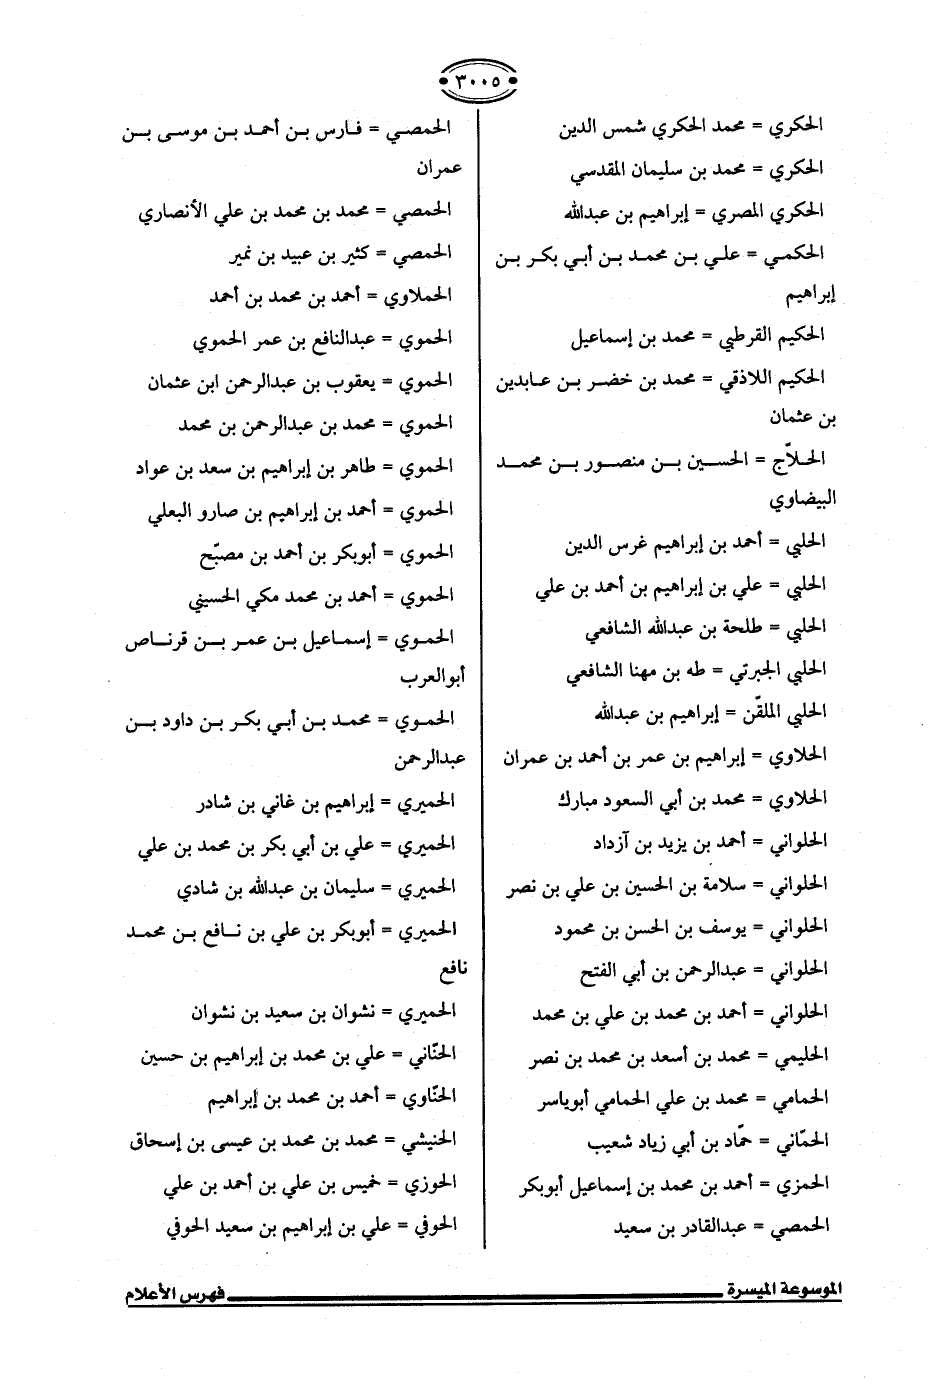 ٣٠٠٥
الحكري = محمد الحكري شمس الدين
الحكري = محمد بن سليمان المقدسي
الحكري المصري = إبراهيم بن عبدالله
الحكمي = علي بن محمد بن أبي بكر بن
إبراهيم
الحكيم القرطبي = محمد بن إسماعيل
الحكيم اللاذقي = محمد بن خضر بن عابدين
بن عثمان
الحلاّج = الحسين بن منصور بن محمد
البيضاوي
الحلبي = أحمد بن إبراهيم غرس الدين
الحلبي = علي بن إبراهيم بن أحمد بن علي
الحلبي = طلحة بن عبدالله الشافعي
الحلبي الجبرتي = طه بن مهنا الشافعي
الحلبي الملقّن = إبراهيم بن عبدالله
الحلاوي = إبراهيم بن عمر بن أحمد بن عمران
الحلاوي = محمد بن أبي السعود مبارك
الحلواني = أحمد بن يزيد بن آزداد
الحلواني = سلامة بن الحسين بن علي بن نصر
الحلواني = يوسف بن الحسن بن محمود
الحلواني = عبدالرحمن بن أبي الفتح
الحلواني = أحمد بن محمد بن علي بن محمد
الحليمي = محمد بن أسعد بن محمد بن نصر
الحمامي = محمد بن علي الحمامي أبوياسر
الحمّاني = حمّاد بن أبي زياد شعيب
الحمزي = أحمد بن محمد بن إسماعيل أبوبكر
الحمصي = عبدالقادر بن سعيد
الحمصي = فارس بن أحمد بن موسى بن
عمران
الحمصي = محمد بن محمد بن علي الأنصاري
الحمصي = كثير بن عبيد بن نمير
الحملاوي = أحمد بن محمد بن أحمد
الحموي = عبدالنافع بن عمر الحموي
الحموي = يعقوب بن عبدالرحمن ابن عثمان
الحموي = محمد بن عبدالرحمن بن محمد
الحموي = طاهر بن إبراهيم بن سعد بن عواد
الحموي = أحمد بن إبراهيم بن صارو البعلي
الحموي = أبوبكر بن أحمد بن مصبّح
الحموي = أحمد بن محمد مكي الحسيني
الحموي = إسماعيل بن عمر بن قرناص
أبوالعرب
الحموي = محمد بن أبي بكر بن داود بن
عبدالرحمن
الحميري = إبراهيم بن غاني بن شادر
الحميري = علي بن أبي بكر بن محمد بن علي
الحميري = سليمان بن عبدالله بن شادي
الحميري = أبوبكر بن علي بن نافع بن محمد
نافع
الحميري = نشوان بن سعيد بن نشوان
الحنّاني = علي بن محمد بن إبراهيم بن حسين
الحنّاوي = أحمد بن محمد بن إبراهيم
الحنيشي = محمد بن محمد بن عيسى بن إسحاق
الحوزي = خميس بن علي بن أحمد بن علي
الحوفي = علي بن إبراهيم بن سعيد الحوفي
الموسوعة الميسرة
فهرس الأعلام